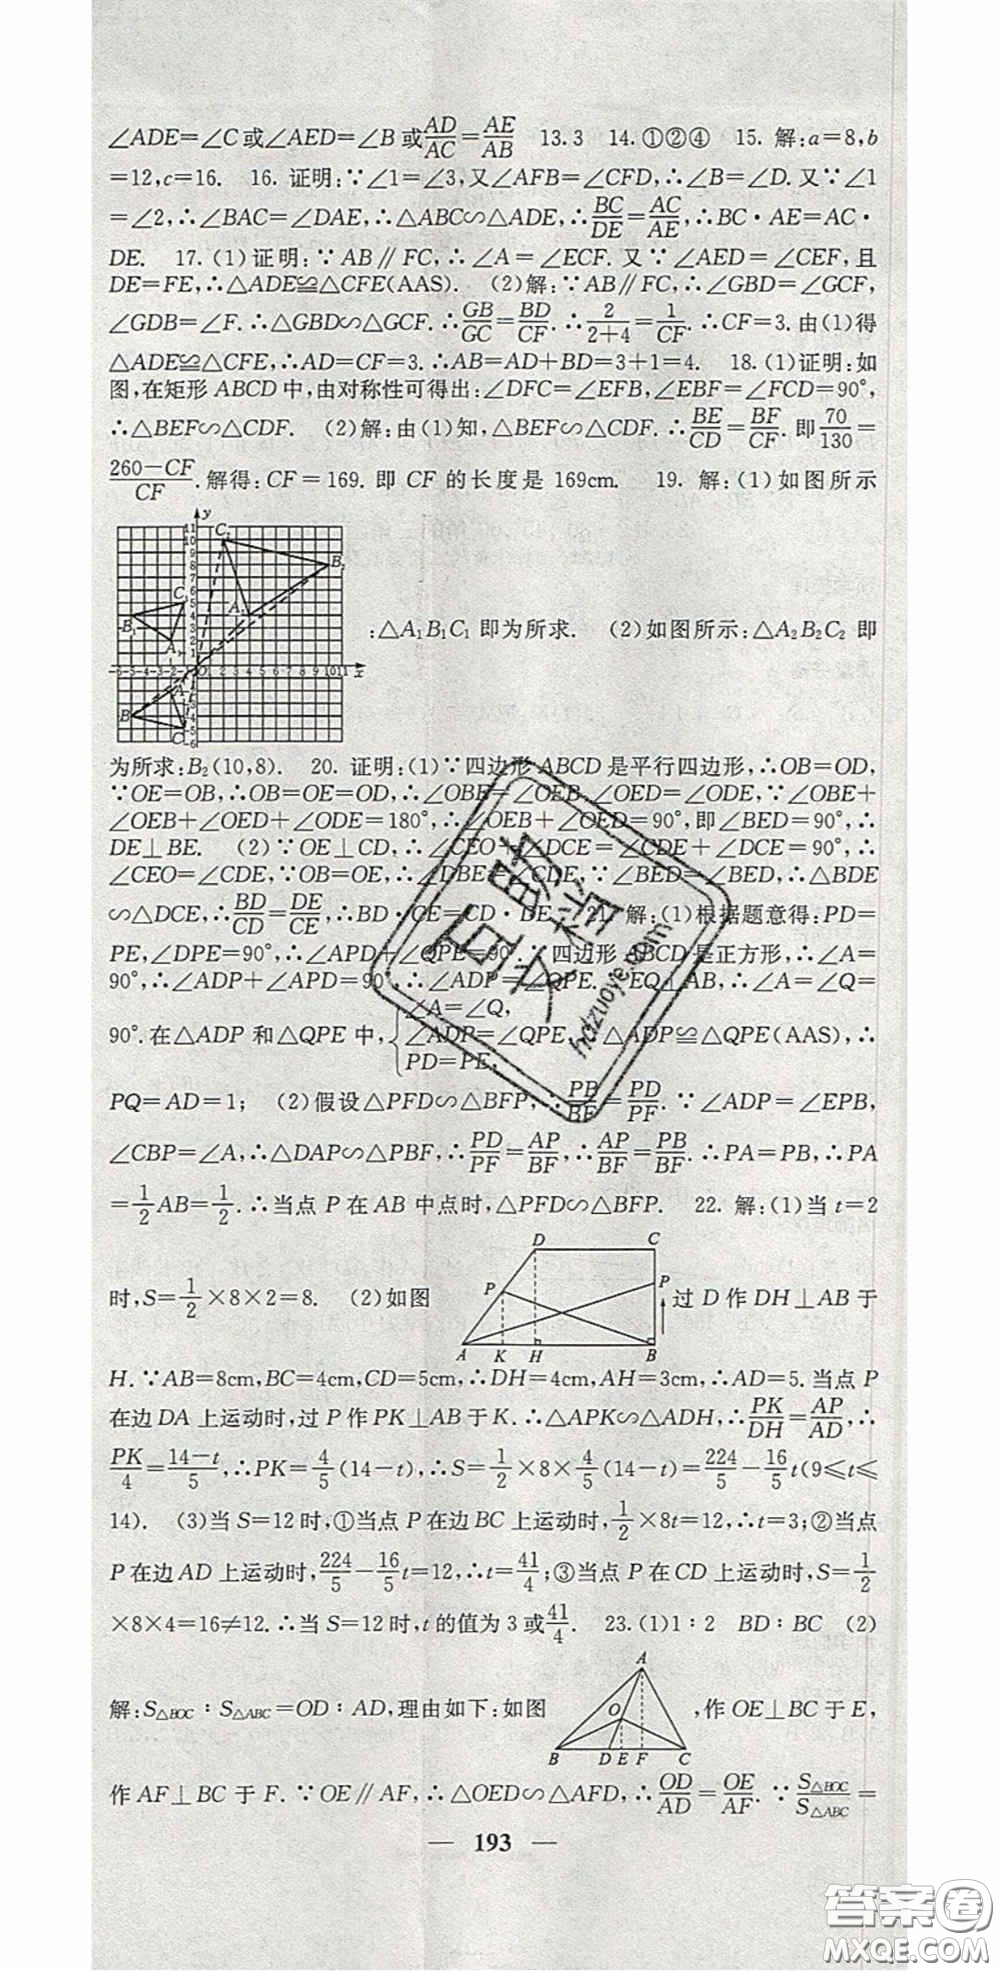 ∠ADE=∠C或∠AED=∠B或AD/AC=AE/AB 13.3 14.①②④ 15. 解:a=8,b
=12,c=16. 16. 证明:∵∠1=∠3,又∠AFB=∠CFD,∴∠B=∠D.又∵∠1
=∠2,∴∠BAC=∠DAE,∴△ABC∽△ADE,∴BC/DE=AC/AE,∴BC·AE=AC·
DE. 17.(1)证明:∵AB∥FC,∴∠A=∠ECF.又∵∠AED=∠CEF,且
DE=FE,∴△ADE≌△CFE(AAS). (2)解:∵AB∥FC,∴∠GBD=∠GCF,
∠GDB=∠F.∴△GBD∽△GCF.∴GB/GC=BD/CF.∴2/(2+4)=1/CF.∴CF=3.由(1)得
△ADE≌△CFE,∴AD=CF=3.∴AB=AD+BD=3+1=4. 18.(1)证明:如
图,在矩形ABCD中,由对称性可得出:∠DFC=∠EFB,∠EBF=∠FCD=90°,
∴△BEF∽△CDF. (2)解:由(1)知,△BEF∽△CDF.∴BE/CD=BF/CF.即70/130=
(260-CF)/CF.解得:CF=169.即CF的长度是169cm. 19. 解:(1)如图所示
:△A₁B₁C₁即为所求. (2)如图所示:△A₂B₂C₂即
为所求:B₂(10,8). 20. 证明:(1)∵四边形ABCD是平行四边形,∴OB=OD,
∵OE=OB,∴OB=OE=OD,∴∠OBE=∠OEB,∠OED=∠ODE,∵∠OBE+
∠OEB+∠OED+∠ODE=180°,∴∠OEB+∠OED=90°,即∠BED=90°,∴
DE⊥BE. (2)∵OE⊥CD,∴∠CEO+∠DCE=∠CDE+∠DCE=90°,∴
∠CEO=∠CDE,∵OB=OE,∴∠DBE=∠CDE,∵∠BED=∠BED,∴△BDE
∽△DCE,∴BD/CD=DE/CE,∴BD·CE=CD·DE. 21. 解:(1)根据题意得:PD=
PE,∠DPE=90°,∴∠APD+∠QPE=90°.∵四边形ABCD是正方形,∴∠A=
90°,∴∠ADP+∠APD=90°,∴∠ADP=∠QPE.∵EQ⊥AB,∴∠A=∠Q=
∠A=∠Q,
90°.在△ADP和△QPE中,{∠ADP=∠QPE,∴△ADP≌△QPE(AAS),∴
PD=PE,
PQ=AD=1; (2)假设△PFD∽△BFP,∴PB/BF=PD/PF.∵∠ADP=∠EPB,
∠CBP=∠A,∴△DAP∽△PBF,∴PD/PF=AP/BF,∴AP/BF=PB/BF.∴PA=PB,∴PA
=1/2AB=1/2.∴当点P在AB中点时,△PFD∽△BFP. 22. 解:(1)当t=2
D C
时,S=1/2×8×2=8. (2)如图
P P
过D作DH⊥AB于
A K H B
H.∵AB=8cm,BC=4cm,CD=5cm,∴DH=4cm,AH=3cm,∴AD=5.当点P
在边DA上运动时,过P作PK⊥AB于K.∴△APK∽△ADH,∴PK/DH=AP/AD,∴
PK/4=(14-t)/5,∴PK=4/5(14-t),∴S=1/2×8×4/5(14-t)=224/5-16/5t(9≤t≤
14). (3)当S=12时,①当点P在边BC上运动时,1/2×8t=12,∴t=3;②当点
P在边AD上运动时,224/5-16/5t=12,∴t=41/4;③当点P在CD上运动时,S=1/2
×8×4=16≠12.∴当S=12时,t的值为3或41/4. 23.(1)1∶2 BD∶BC (2)
A
解:S△BOC∶S△ABC=OD∶AD,理由如下:如图
O
,作OE⊥BC于E,
B D E F C
作AF⊥BC于F.∵OE∥AF,∴△OED∽△AFD,∴OD/AD=OE/AF.∵S△BOC/S△ABC=
— 193 —
百助文档
hdzuoye.com
答案圈
MXQE.COM